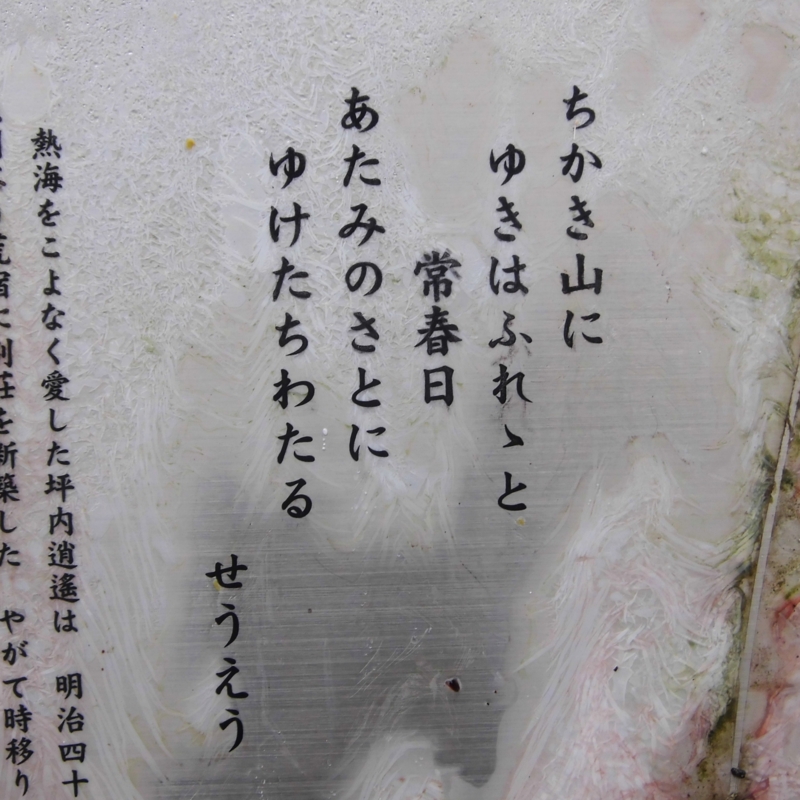 ちかき山に
ゆきはふれゝと
常春日
あたみのさとに
ゆけたちわたる
せうえう
熱海をこよなく愛した坪内逍遙は 明治四十
荒宿に別荘を新築した やがて時移り